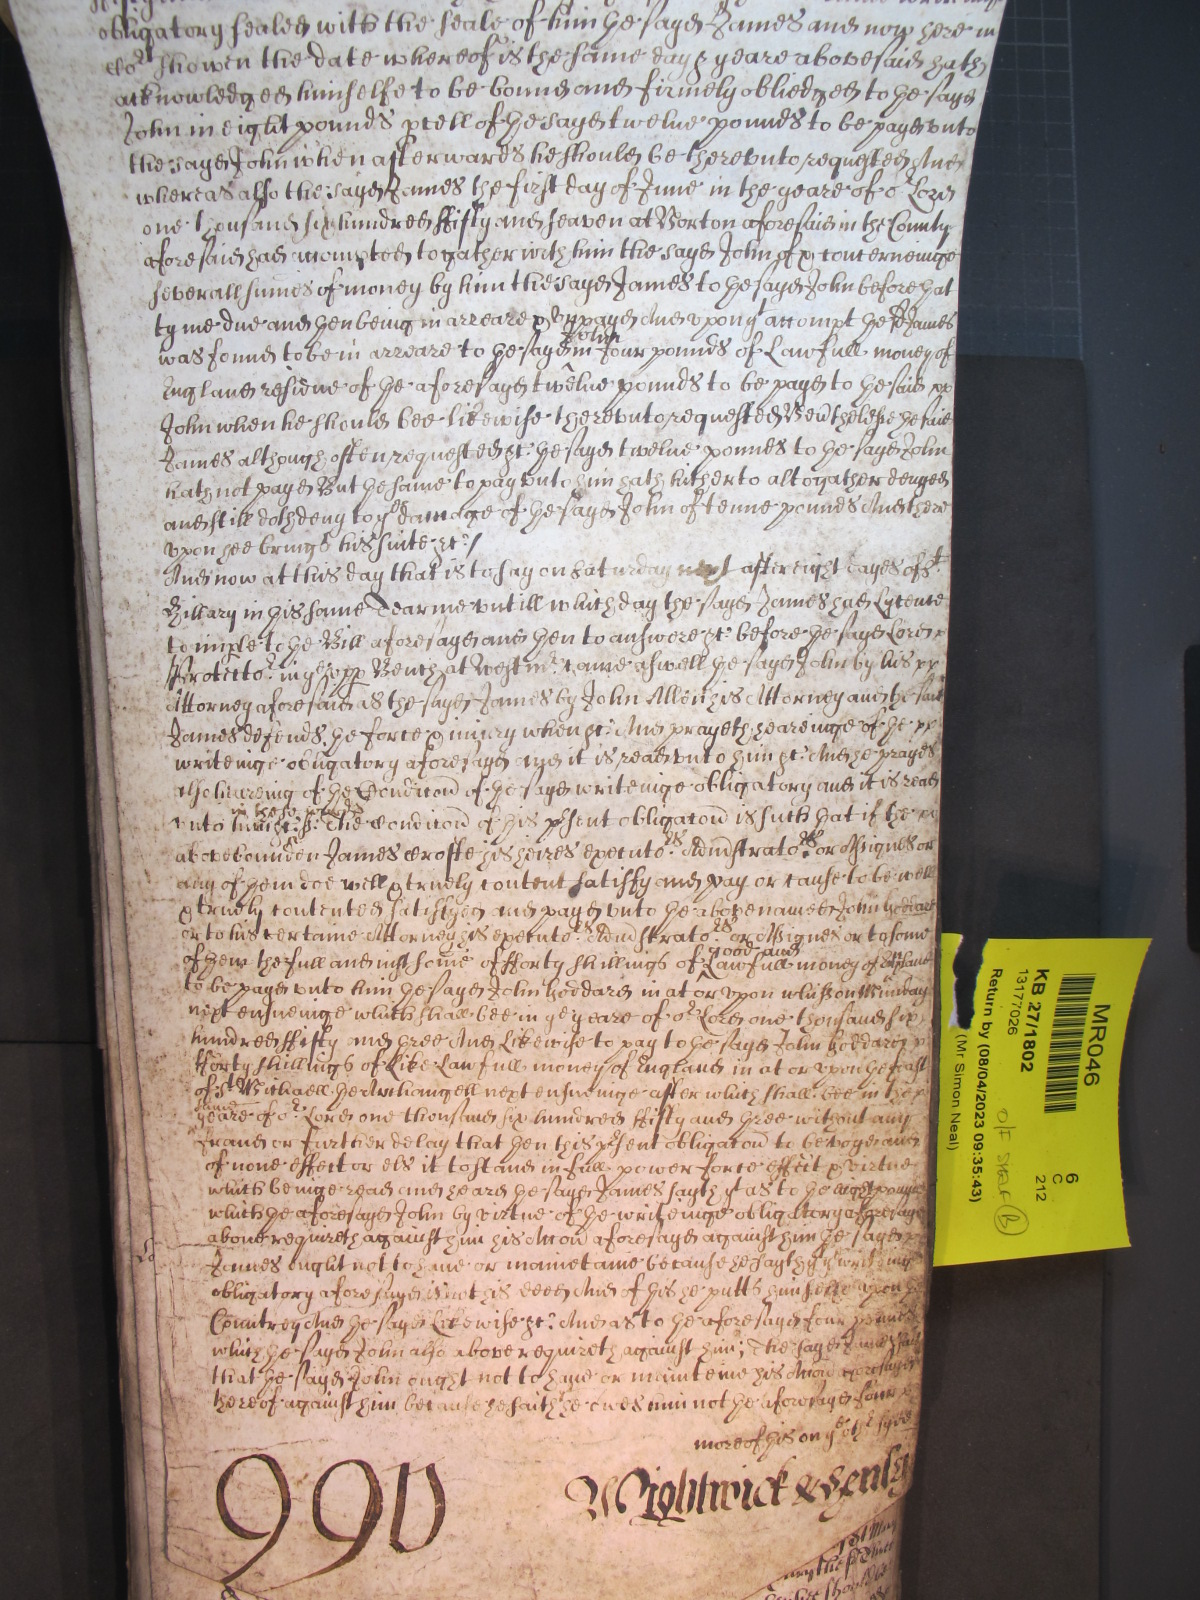 obligatory sealed with the seale of him the sayd James and now here in
Co:rt shewen the date whereof is the same day & yeare abovesaid hath
acknowledged himselfe to be bound and firmely obliedged to the sayd
John in eight pounds pcell of the sayd twelve pounds to be payd vnto
the sayd John when afterwards he should be therevnto requested And
whereas also the sayd James the first day of June in the yeare of o:r Lord
one thousand six hundred ffifty and seaven at Norton aforesaid in the County
aforesaid had accompted togather with him the sayd John of & concerneinge
severall sumes of money by him the sayd James to the sayd John before that
tyme due and then being in arreare & vnpayd And vpon yt accompt the sd James
was found to be in arreare to the sayd John in four pounds of Lawfull money of
England residue of the aforesayd twelve pounds to be payd to the said
John when he should bee likewise therevnto requested Nevthelesse the said
James although often requested &c: the sayd twelve pounds to the sayd John
hath not payd But the same to pay vnto him hath hitherto altogather denyed
and still doth deny to ye damage of the sayd John of tenne pounds And there
vpon hee brings his suite &c:/
And now at this day that is to say on Saturday next after eight dayes of St
Hillary in this same Tearme vntill which day the sayd James had Lycence
to imple to the Bill aforesayd and then to answere &c: before the sayd Lord
Protecto:r in ye vpp Bench at Westm:r came aswell the sayd John by his
Attorney aforesaid as the sayd James by John Allen his Attorney and the said
James defends the force & iniury when &c: And prayeth heareinge of the
writeinge obligatory aforesayd and it is read vnto him &c: And he prayes
also heareing of the Condicion of the sayd writeinge obligatory and it is read
vnto him &c: in these words The Condicion of this psent obligacion is such that if the
abovebounden James Crofte his heires executo:rs Administrato:rs or Assignes or
any of them doe well & truely content satisfy and pay or cause to be well
& truely contented satisfyed and payd vnto the abovenamed John Goddard
or to his certaine Attorney his executo:rs Administrato:rs or Assignes or to some
of them the full and iust some of fforty shillings of good and Lawfull money of England
to be payd vnto him the sayd John Goddard in at or vpon whitson Munday
next ensueinge which shall bee in ye yeare of o:r Lord one thousand six
hundred ffifty and three And Likewise to pay to the sayd John Goddard
fforty shillings of Like Lawfull money of England in at or vpon the feast
of St Michaell the Archangell next ensueinge after which shall bee in the
yeare of o:r Lord one thousand six hundred ffifty and three without any
fraud or further delay that then this psent obligacion to be voyd and
of none effect or els it to stand in full power force effect & virtue
which beinge read and heard the sayd James sayth yt as to the eight pounds
which the aforesayd John by virtue of the writeinge obligatory aforesayd
above requireth against him his Accion aforesayd against him the sayd
James ought not to have or maintaine because he sayth yt ye writeinge
obligatory aforesayd is not his deed And of this he putts himselfe vpon the
Countrey And the sayd Likewise &c: And as to the aforesayd four pounds
which the sayd John also above requireth against him; The sayd James saith
that the sayd John ought not to have or mainteine his Accion aforesayd
thereof against him because he saith he owes him not the aforesayd four
more of this on ye oth:r syde
990
Wightwick & Henly
MR046
6
C
212
KB 27/1802
13177026
Return by (08/04/2023 09:35:43)
(Mr Simon Neal)